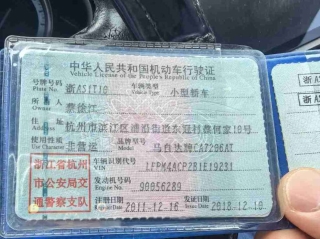 中华人民共和国机动车行驶证
Vehicle License of the People's Republic of China
号牌号码 浙A51T10 车辆类型 小型轿车
Plate No. Vehicle Type
所有人
Owner
住址 杭州市滨江区浦沿街道东冠村
Address
使用性质 非营运 品牌型号 马自达牌CA7206AT
Use Character Model
浙江省杭州 车辆识别代号 LFPM4ACP2B1E19231
VIN
市公安局交 发动机号码 90056289
Engine No.
通警察支队 注册日期 2011-12-16 发证日期 2018-12-10